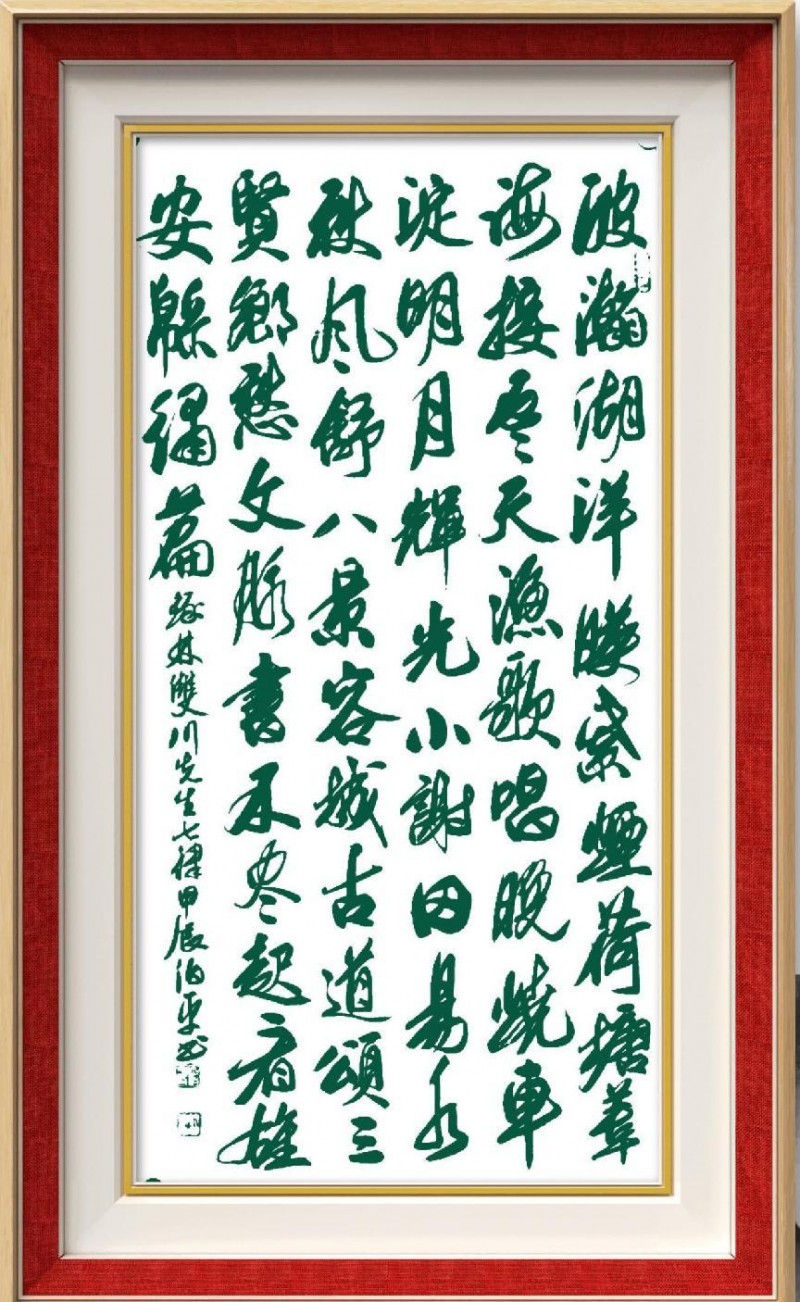 波瀚湖洋暎紫煙荷塘葦
海接雲天漁歌唱晚燒車
淀明月輝光小謝田易水
秋風舒八景容城古道頌三
賢鄉愁文脉書不盡起看雄
安綿繡篇錄林雙川先生七律甲辰伯平书